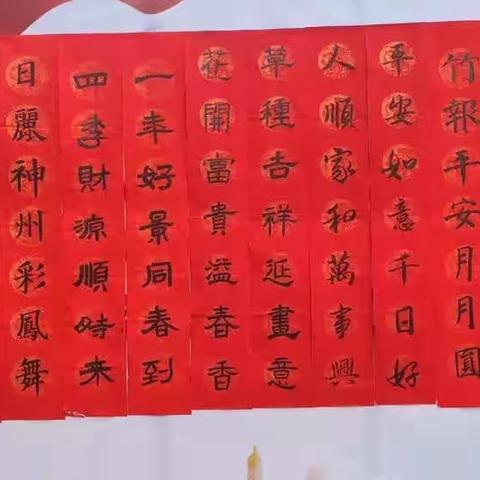 竹報平安月月圓
平安如意千日好
人順家和萬事興
草種吉祥延畫意
花開富貴溢春香
一年好景同春到
四季財源順時來
日麗神州彩鳳舞